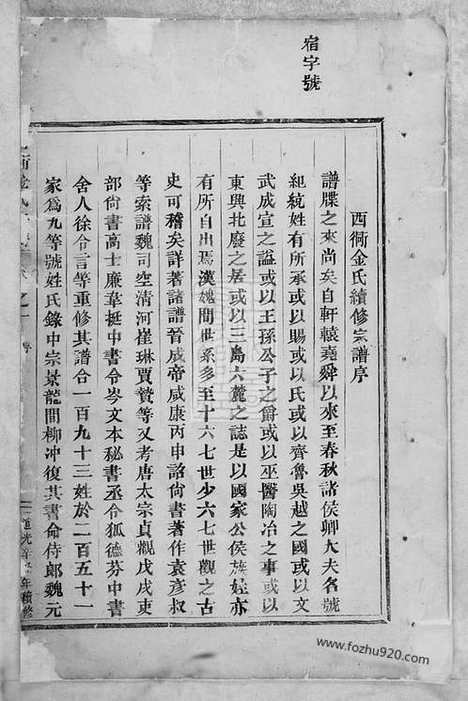 宿字號
西衕金氏續修宗譜序
譜牒之來尚矣自軒轅堯舜以來至春秋諸侯卿大夫名號
紀統姓有所承或以賜或以氏或以齊魯吳越之國或以文
武成宣之謚或以王孫公子之爵或以巫醫陶冶之事或以
東興北廢之居或以三島六麓之誌是以國家公侯族姓亦
有所自出焉漢魏間世系多至十六七世少六七世觀之古
史可稽矣詳著諸譜晉咸帝咸康丙申詔尙書著作袁彥叔
等索譜魏司空清河崔琳賈贊等又考唐太宗貞觀戊戌吏
部尙書高士廉韋挺中書令岑文本秘書丞令狐德芬中書
舍人徐令言等重修其譜合一百九十三姓於二百五十一
家爲九等號姓氏錄中宗景龍間柳沖復其書命侍郎魏元
www.fozhu920.com